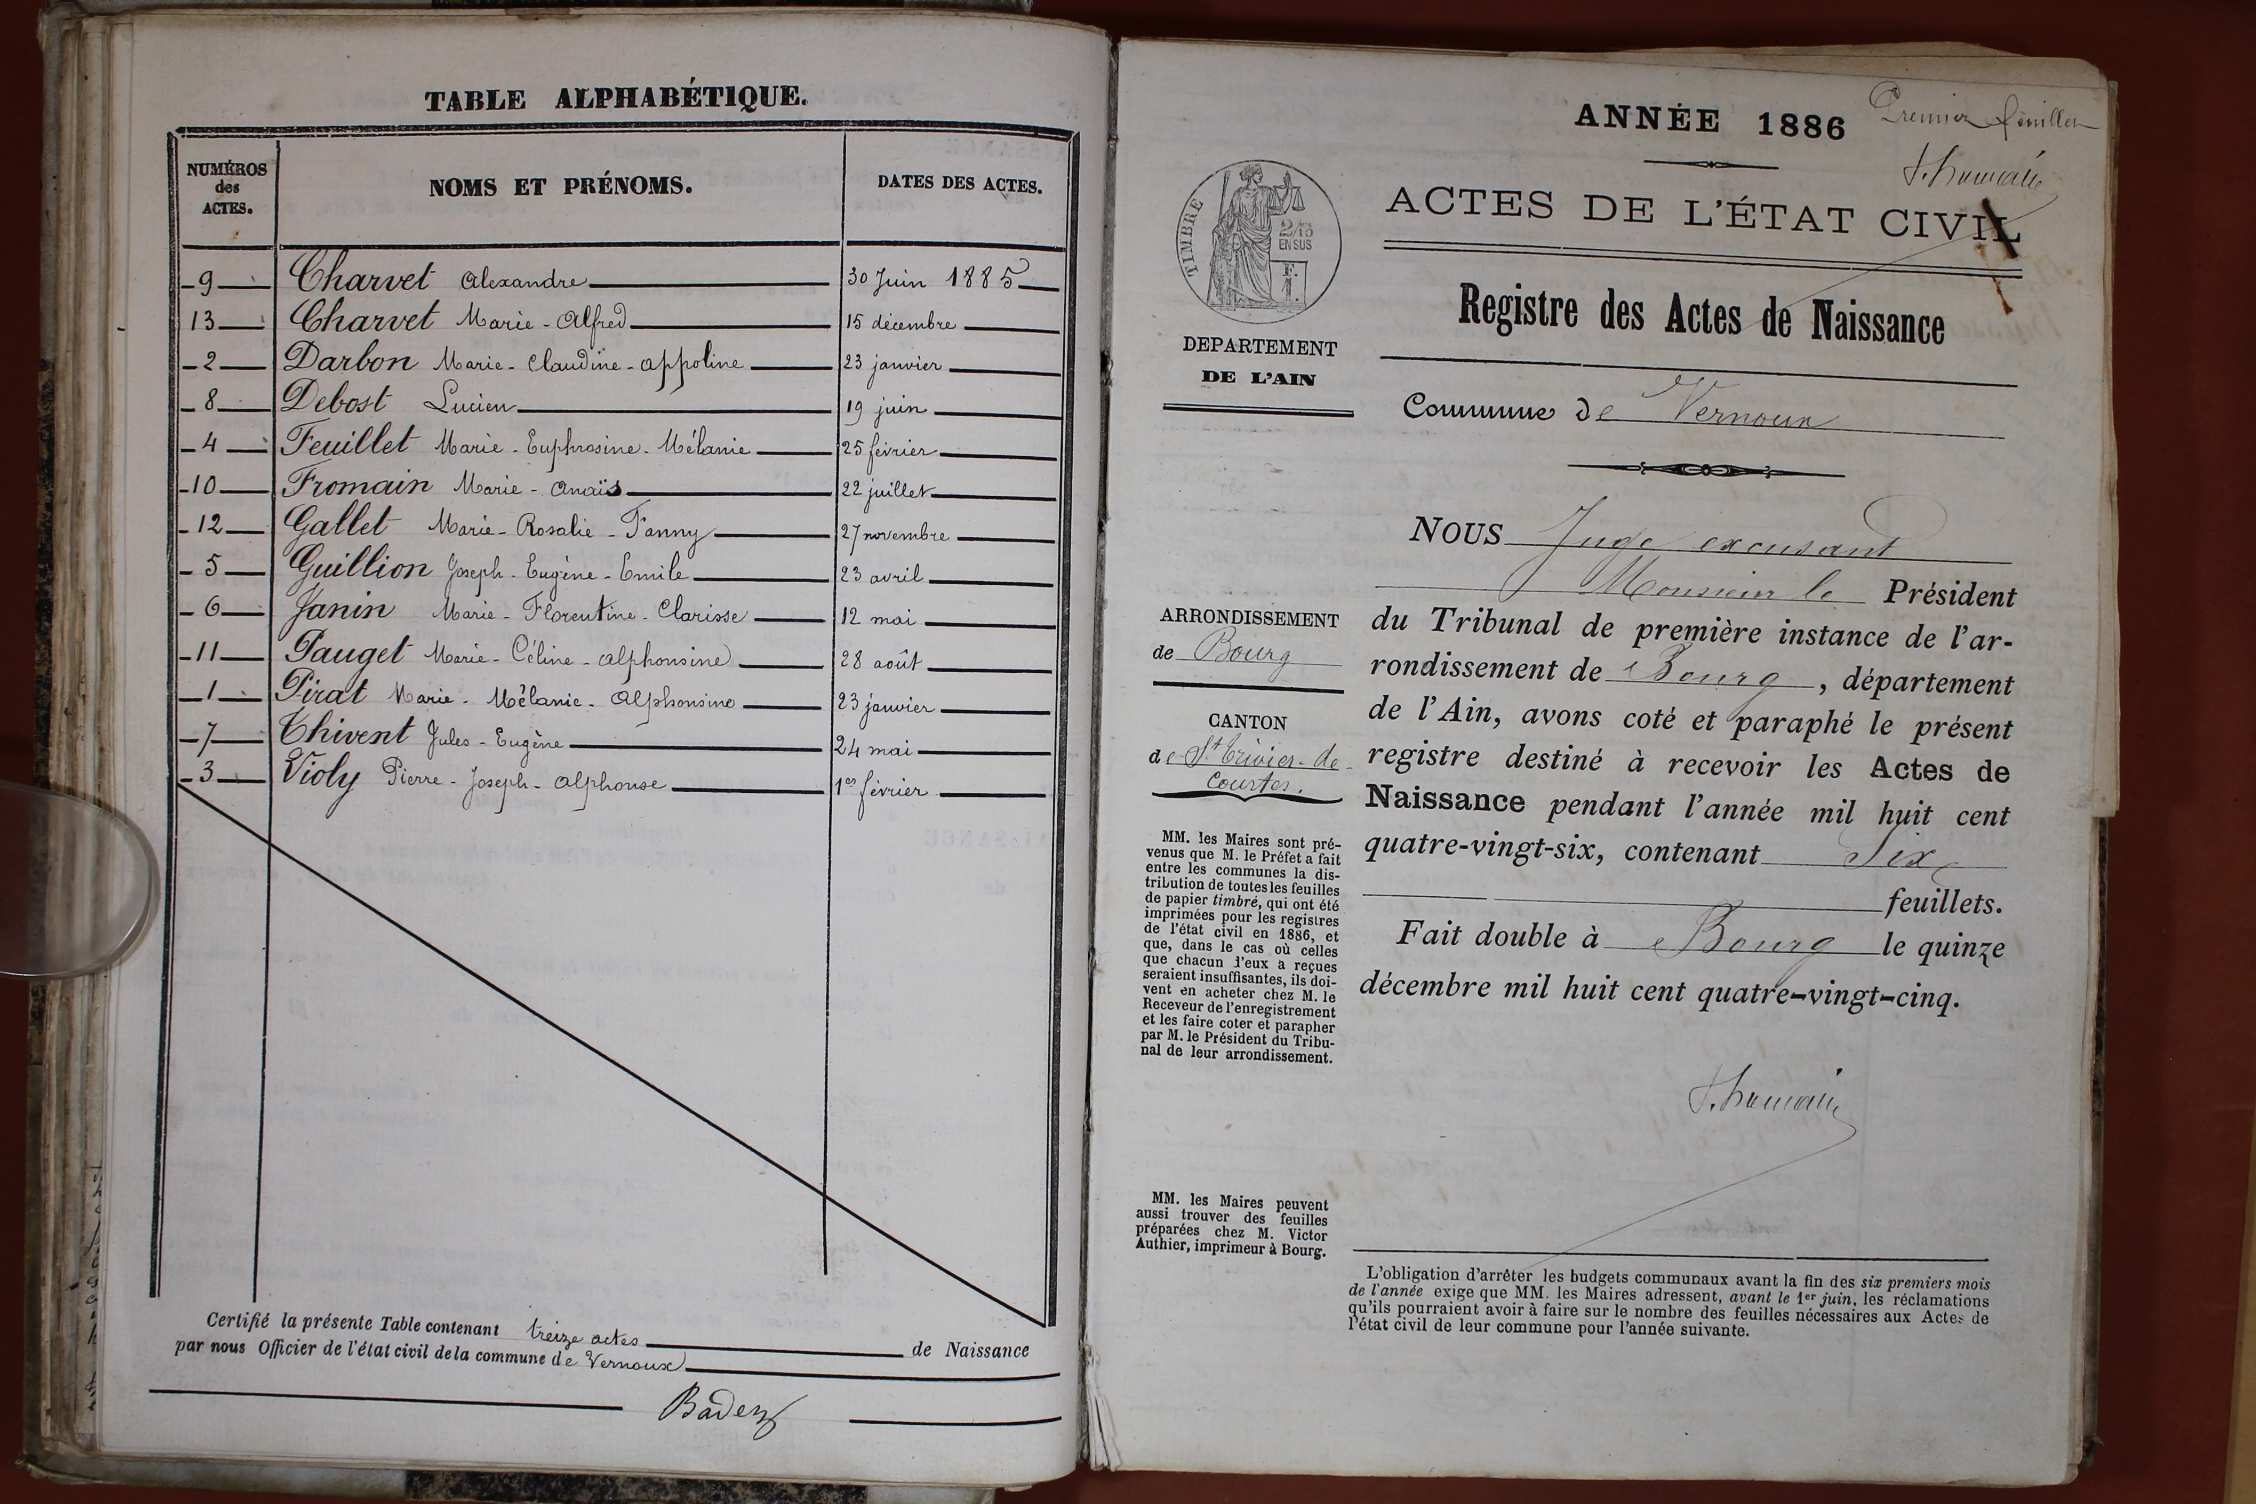 TABLE ALPHABÉTIQUE.
NUMÉROS des ACTES. NOMS ET PRÉNOMS. DATES DES ACTES.
9 Charvet Alexandre 30 Juin 1885
13 Charvet Marie-Alfred 15 décembre
2 Darbon Marie-Claudine-Appoline 23 janvier
8 Debost Lucien 19 juin
4 Feuillet Marie-Euphrosine-Mélanie 25 février
10 Fromain Marie-Anaïs 22 juillet
12 Gallet Marie-Rosalie-Fanny 27 novembre
5 Guillion Joseph-Eugène-Emile 23 avril
6 Janin Marie-Florentine-Clarisse 12 mai
11 Pauget Marie-Céline-Alphonsine 28 août
1 Pirat Marie-Mélanie-Alphonsine 23 janvier
7 Thivent Jules-Eugène 24 mai
3 Violy Pierre-Joseph-Alphonse 1er février
Certifié la présente Table contenant treize actes de Naissance
par nous Officier de l'état civil de la commune de Vernoux
ANNÉE 1886
Premier feuillet
ACTES DE L'ÉTAT CIVIL
TIMBRE
2/10
EN SUS
F.
1.
Registre des Actes de Naissance
DEPARTEMENT
DE L'AIN
Commune de Vernoux
NOUS Juge excusant
Monsieur le Président
du Tribunal de première instance de l'ar-
rondissement de Bourg, département
de l'Ain, avons coté et paraphé le présent
registre destiné à recevoir les Actes de
Naissance pendant l'année mil huit cent
quatre-vingt-six, contenant Six
feuillets.
Fait double à Bourg le quinze
décembre mil huit cent quatre-vingt-cinq.
ARRONDISSEMENT
de Bourg
CANTON
de St Trivier-de-
Courtes.
MM. les Maires sont pré-
venus que M. le Préfet a fait
entre les communes la dis-
tribution de toutes les feuilles
de papier timbré, qui ont été
imprimées pour les registres
de l'état civil en 1886, et
que, dans le cas où celles
que chacun d'eux a reçues
seraient insuffisantes, ils doi-
vent en acheter chez M. le
Receveur de l'enregistrement
et les faire coter et parapher
par M. le Président du Tribu-
nal de leur arrondissement.
MM. les Maires peuvent
aussi trouver des feuilles
préparées chez M. Victor
Authier, imprimeur à Bourg.
L'obligation d'arrêter les budgets communaux avant la fin des six premiers mois
de l'année exige que MM. les Maires adressent, avant le 1er juin, les réclamations
qu'ils pourraient avoir à faire sur le nombre des feuilles nécessaires aux Actes de
l'état civil de leur commune pour l'année suivante.